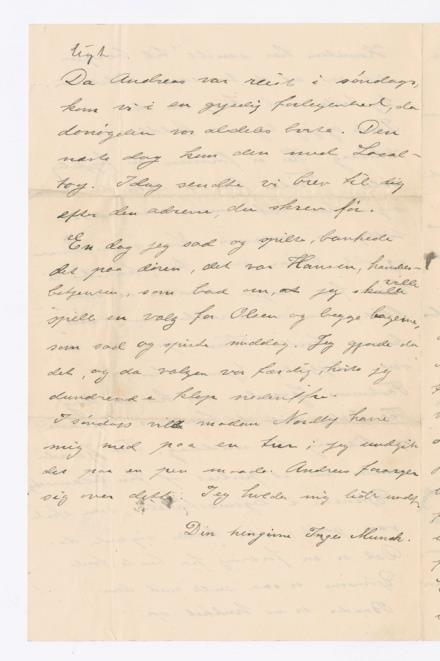 sligt.
Da Andreas var reist i søndags,
kom vi i en gyselig forlegenhed, da
donøgelen var aldeles borte. Den
næste dag kom den med Local-
tog. Idag sendte vi brev til dig
efter den adresse, du skrev før.
En dag jeg sad og spilte, bankede
det paa døren, det var Hansen,
betjenten, som bad om, at jeg skulde ville
spille en valg for Olsen og begge
som sad og spiste middag. Jeg gjorde da
det, og da valgen var færdig, hørte jeg
dundrende klap nedenfra.
I søndags vilde madam Nordby have
mig med paa en tur; jeg undgik
det paa en pen maade. Andreas
sig over dette. Jeg holder mig lidt
Din hengivne Inger Munch.